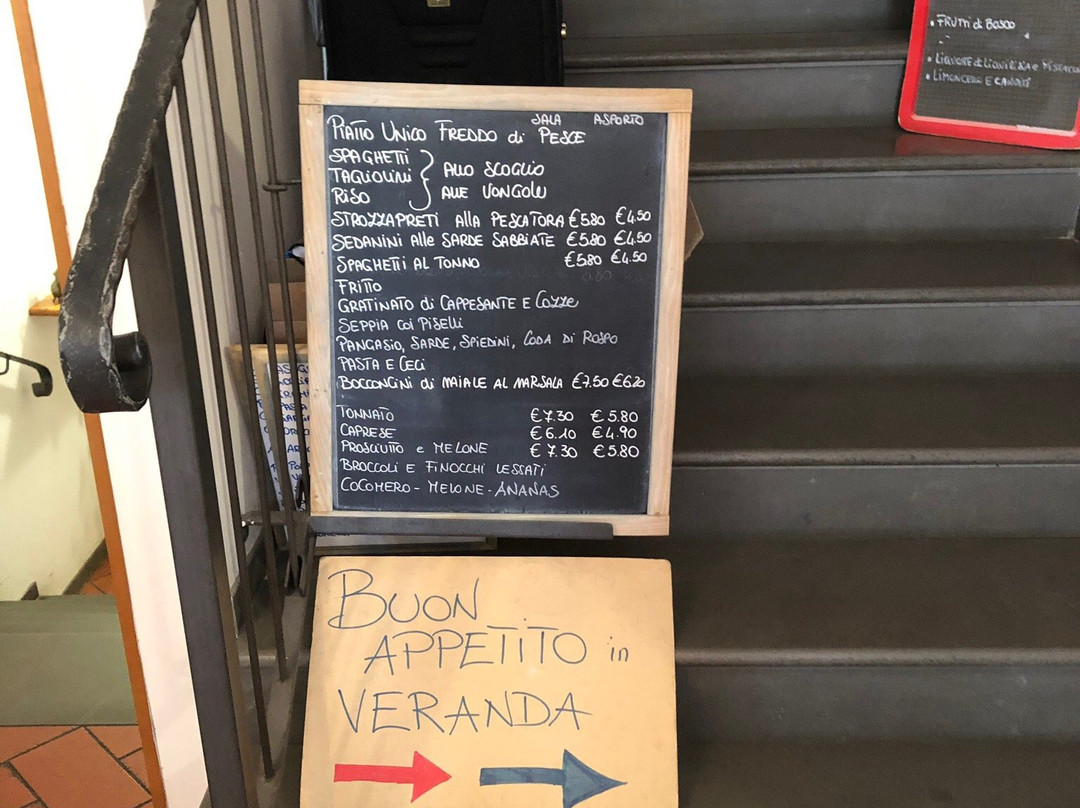 SALA ASPORTO
PIATTO UNICO FREDDO di PESCE
SPAGHETTI
TAGLIOLINI
RISO
ALLO SCOGLIO
ALLE VONGOLE
STROZZAPRETI alla PESCATORA €5.80 €4.50
SEDANINI alle SARDE SABBIATE €5.80 €4.50
SPAGHETTI AL TONNO €5.80 €4.50
FRITTO
GRATINATO di CAPPESANTE E COZZE
SEPPIA coi PISELLI
PANGASIO, SARDE, SPIEDINI, CODA DI ROSPO
PASTA E CECI
BOCCONCINI di MAIALE AL MARSALA €7.50 €6.20
TONNATO €7.30 €5.80
CAPRESE €6.10 €4.90
PROSCIUTTO e MELONE €7.30 €5.80
BROCCOLI E FINOCCHI LESSATI
COCOMERO - MELONE - ANANAS
BUON
APPETITO in
VERANDA
• FRUTTI di BOSCO
• LIQUORE di LIQUIRIZIA e
• LIMONCELLO E